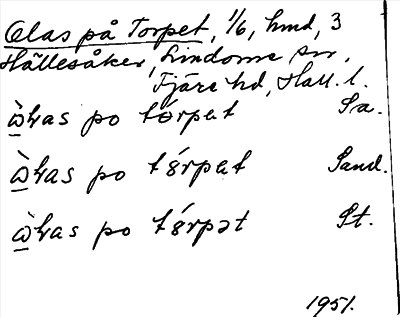 Olas på Torpet, 1/6, hmd, 3
Hällesåker, Lindome sn,
Fjäre hd, Hall. l.
ὰɫas po tórpet Sa.
ὰɫas po tórpet Sand.
ὰɫas po tórpət St.
1951.